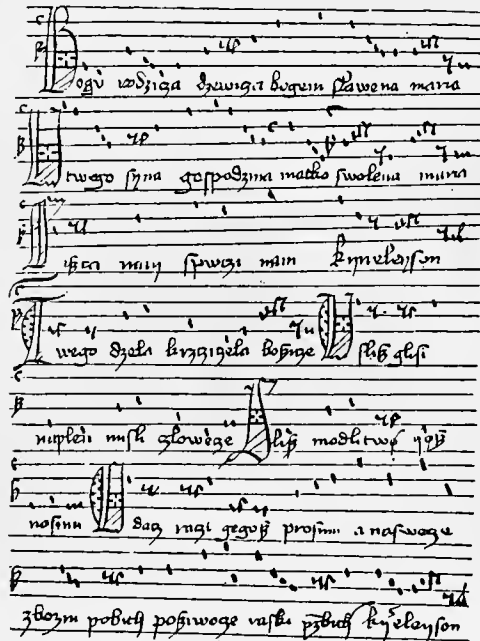 Bogu rodzicza dzewicza bogem slawena maria
U twego syna gospodzina matko swolena maria
Zisczi nam spwczi nam kyrieleyson
Twego dzela krzcziczela bozicze Uslisz glosi
naplen misli czlowecze Slisz modlitwø yøsz
nosimi Odacz raczi gegosz prosimi a naswecze
zbozni pobith posziwocze raski przebith kyrieleyson